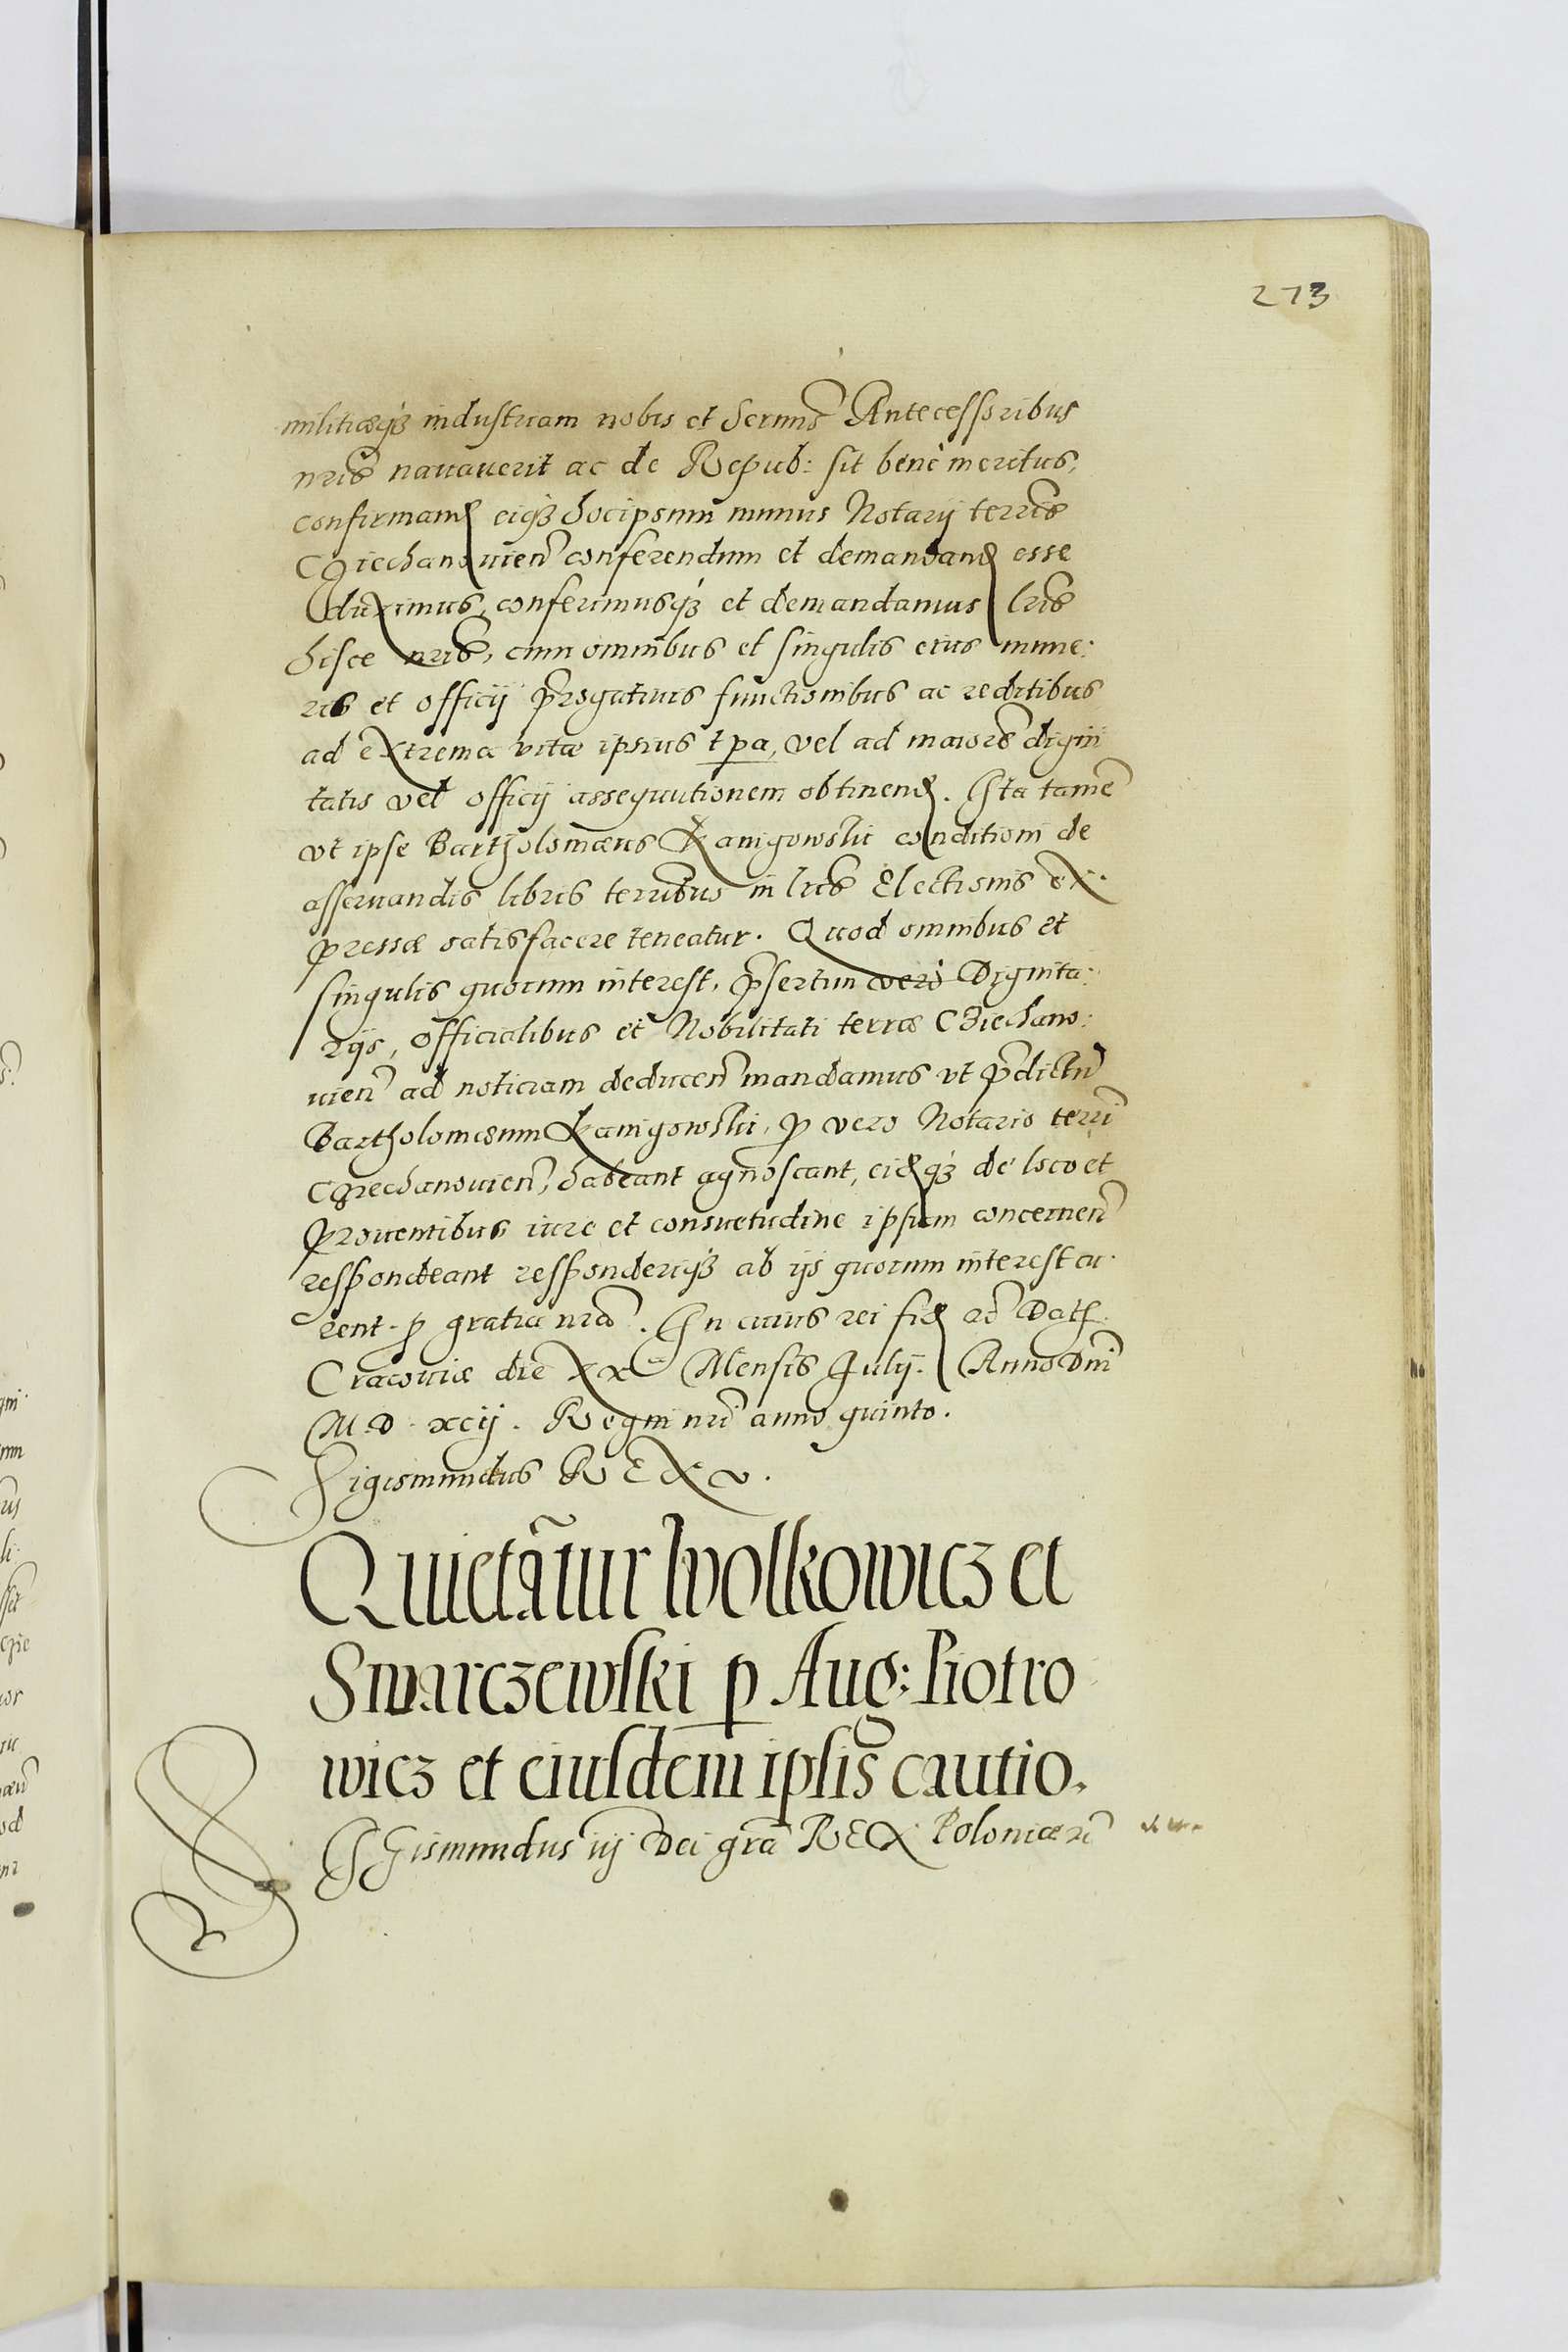 273
militiæq3 industriam nobis et Sermis Antecessoribus
nris navaverit ac de Repub: sit benè meritus,
confirmand eiq3 hocipsum munus Notarij terris
Cziechanouien conferendum et demandand esse
duximus, conferimusq3 et demandamus lris
hisce nris, cum omnibus et singulis eius mune:
ris et officij prrogatiuis functionibus ac reditibus
ad extrema vitæ ipsius tpa, vel ad maioris digni
tatis vel officij assequutionem obtinend. Ita tame
vt ipse Bartholomæus Kanigowski conditioni de
asseruandis libris terribus in lris Electionis ex:
pressæ satisfacere teneatur. Quod omnibus et
singulis quorum interest, prsertim verò Dignita:
rijs, officialibus et Nobilitati terræ Cziechano:
uien ad noticiam deducen mandamus vt prdictu
Bartholomæum Kanigowski, p vero Notario terri
Cziechanouien, habeant agnoscant, eidq3 de loco et
prouentibus iure et consuetudine ipsum concernen
respondeant responderiq3 ab ijs quorum interest cu:
rent. p gratia nra. In cuius rei fid rc Dat
Cracouiæ die xx Mensis Julij. Anno Dni
M.D.xcij. Regni nri anno quinto.
Sigismundus REX
Quietãtur Wolkowicz et
Swarczewski p Aug: Piotro
wicz et eiusdem ipsis cautio.
Sigismundus iij Dei gra REX Poloniæ rc